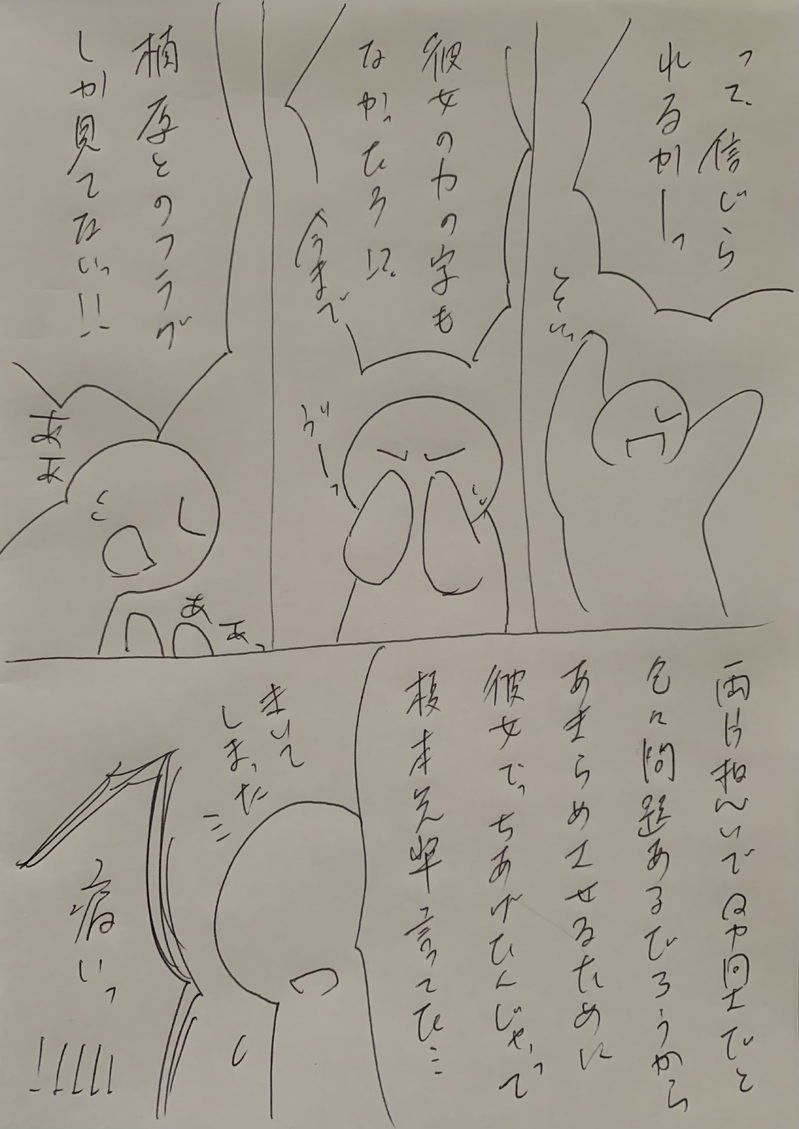 って、信じら
れるかーっ
そいっ
彼女の力の字も
なかったろ!?
今まで
がーっ
植原とのフラグ
しか見てないっ!!
ああ
ああっ
両片想いで男同士だと
色々問題あるだろうから
あきらめさせるために
彼女でっちあげたんじゃって
榎本先輩言ってた…
きいて
しまった
痛いっ
!!!!!